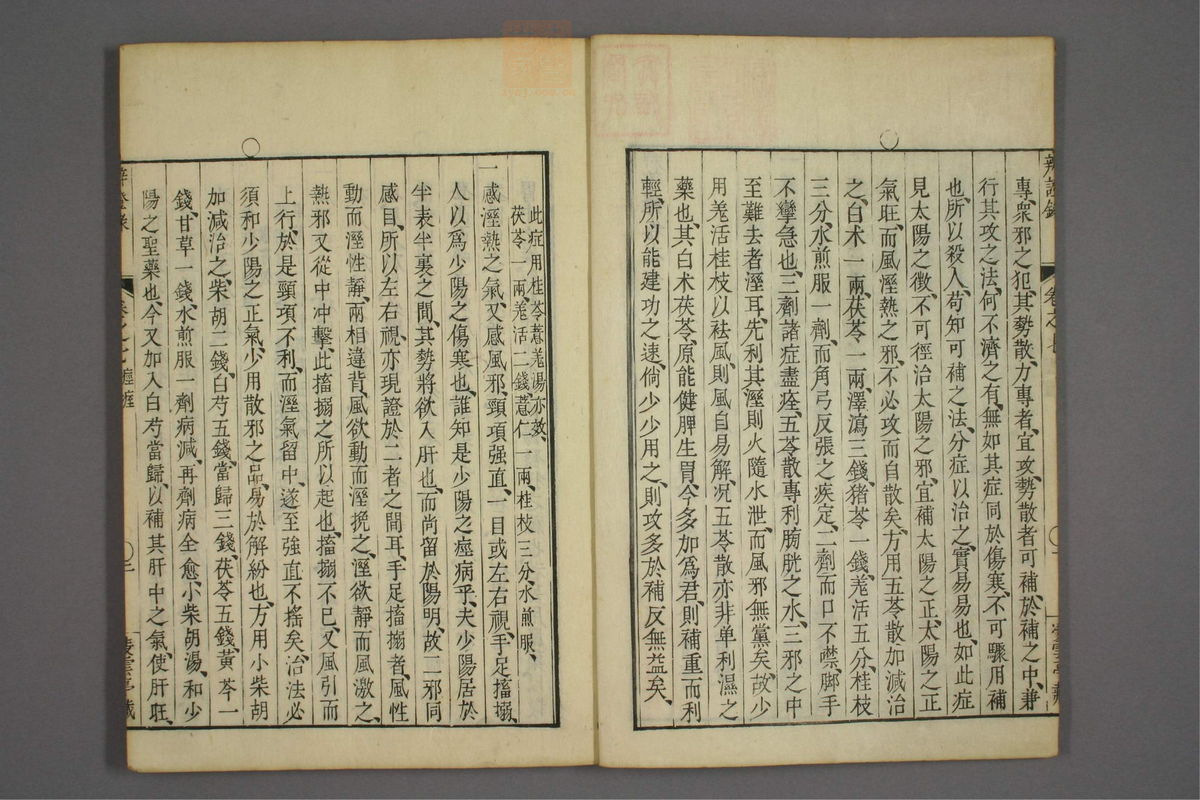 辨證錄 卷之七
專衆邪之犯其勢散力專者宜攻勢散者可補於補之中兼
行其攻之法何不濟之有無如其症同於傷寒不可驟用補
也所以殺人苟知可補之法分症以治之實易易也如此症
見太陽之徵不可徑治太陽之邪宜補太陽之正太陽之正
氣旺而風溼熱之邪不必攻而自散矣方用五苓散加減治
之白术一兩茯苓一兩澤瀉三錢猪苓一錢羗活五分桂枝
三分水煎服一劑而角弓反張之疾定二劑而口不噤脚手
不攣急也三劑諸症盡痊五苓散專利膀胱之水三邪之中
至難去者溼耳先利其溼則火隨水泄而風邪無黨矣故少
用羗活桂枝以祛風則風自易解况五苓散亦非单利濕之
藥也其白术茯苓原能健脾生胃今多加爲君則補重而利
輕所以能建功之速倘少少用之則攻多於補反無益矣
此症用桂苓薏羗湯亦效
茯苓一兩羗活二錢薏仁一兩桂枝三分水煎服
一感溼熱之氣又感風邪頸項强直一目或左右視手足搐搦
人以爲少陽之傷寒也誰知是少陽之痙病乎夫少陽居於
半表半裏之間其勢將欲入肝也而尚留於陽明故二邪同
感目所以左右視亦現證於二者之間耳手足搐搦者風性
動而溼性靜兩相違背風欲動而溼挽之溼欲靜而風激之
熱邪又從中冲擊此搐搦之所以起也搐搦不已又風引而
上行於是頸項不利而溼氣留中遂至強直不搖矣治法必
須和少陽之正氣少用散邪之品易於解紛也方用小柴胡
加減治之柴胡二錢白芍五錢當歸三錢茯苓五錢黃芩一
錢甘草一錢水煎服一劑病減再劑病全愈小柴胡湯和少
陽之聖藥也今又加入白芍當歸以補其肝中之氣使肝旺